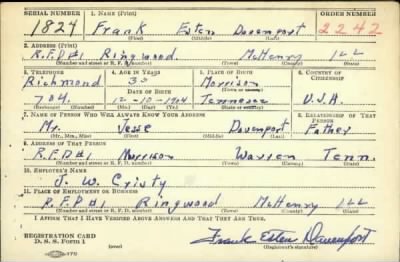 SERIAL NUMBER 1. NAME (Print) ORDER NUMBER
1824 Frank Esten Davenport 2242
(First) (Middle) (Last)
2. ADDRESS (Print)
R.F.D#1 Ringwood McHenry Ill
(Number and street or R. F. D. number) (Town) (County) (State)
3. TELEPHONE 4. AGE IN YEARS 5. PLACE OF BIRTH 6. COUNTRY OF CITIZENSHIP
Richmond Morrison
DATE OF BIRTH (Town or county)
704. 12-10-1904 Tennessee U.S.A.
(Mo.) (Day) (Yr.) (State or country)
7. NAME OF PERSON WHO WILL ALWAYS KNOW YOUR ADDRESS 8. RELATIONSHIP OF THAT PERSON
Mr. Jesse Davenport Father
(Mr., Mrs., Miss) (First) (Middle) (Last)
9. ADDRESS OF THAT PERSON
R.F.D#1 Morrison Warren Tenn.
(Number and street or R. F. D. number) (Town) (County) (State)
10. EMPLOYER'S NAME
J. W. Cristy
11. PLACE OF EMPLOYMENT OR BUSINESS
R.F.D#1 Ringwood McHenry Ill
(Number and street or R. F. D. number) (Town) (County) (State)
I AFFIRM THAT I HAVE VERIFIED ABOVE ANSWERS AND THAT THEY ARE TRUE.
REGISTRATION CARD
D. S. S. Form 1 (over) Frank Esten Davenport
(Registrant's signature)